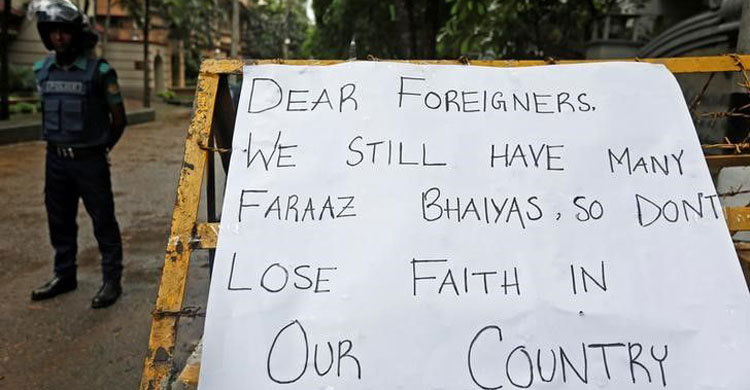 DEAR FOREIGNERS.
WE STILL HAVE MANY
FARAAZ BHAIYAS, SO DONT
LOSE FAITH IN
OUR COUNTRY
POLICE